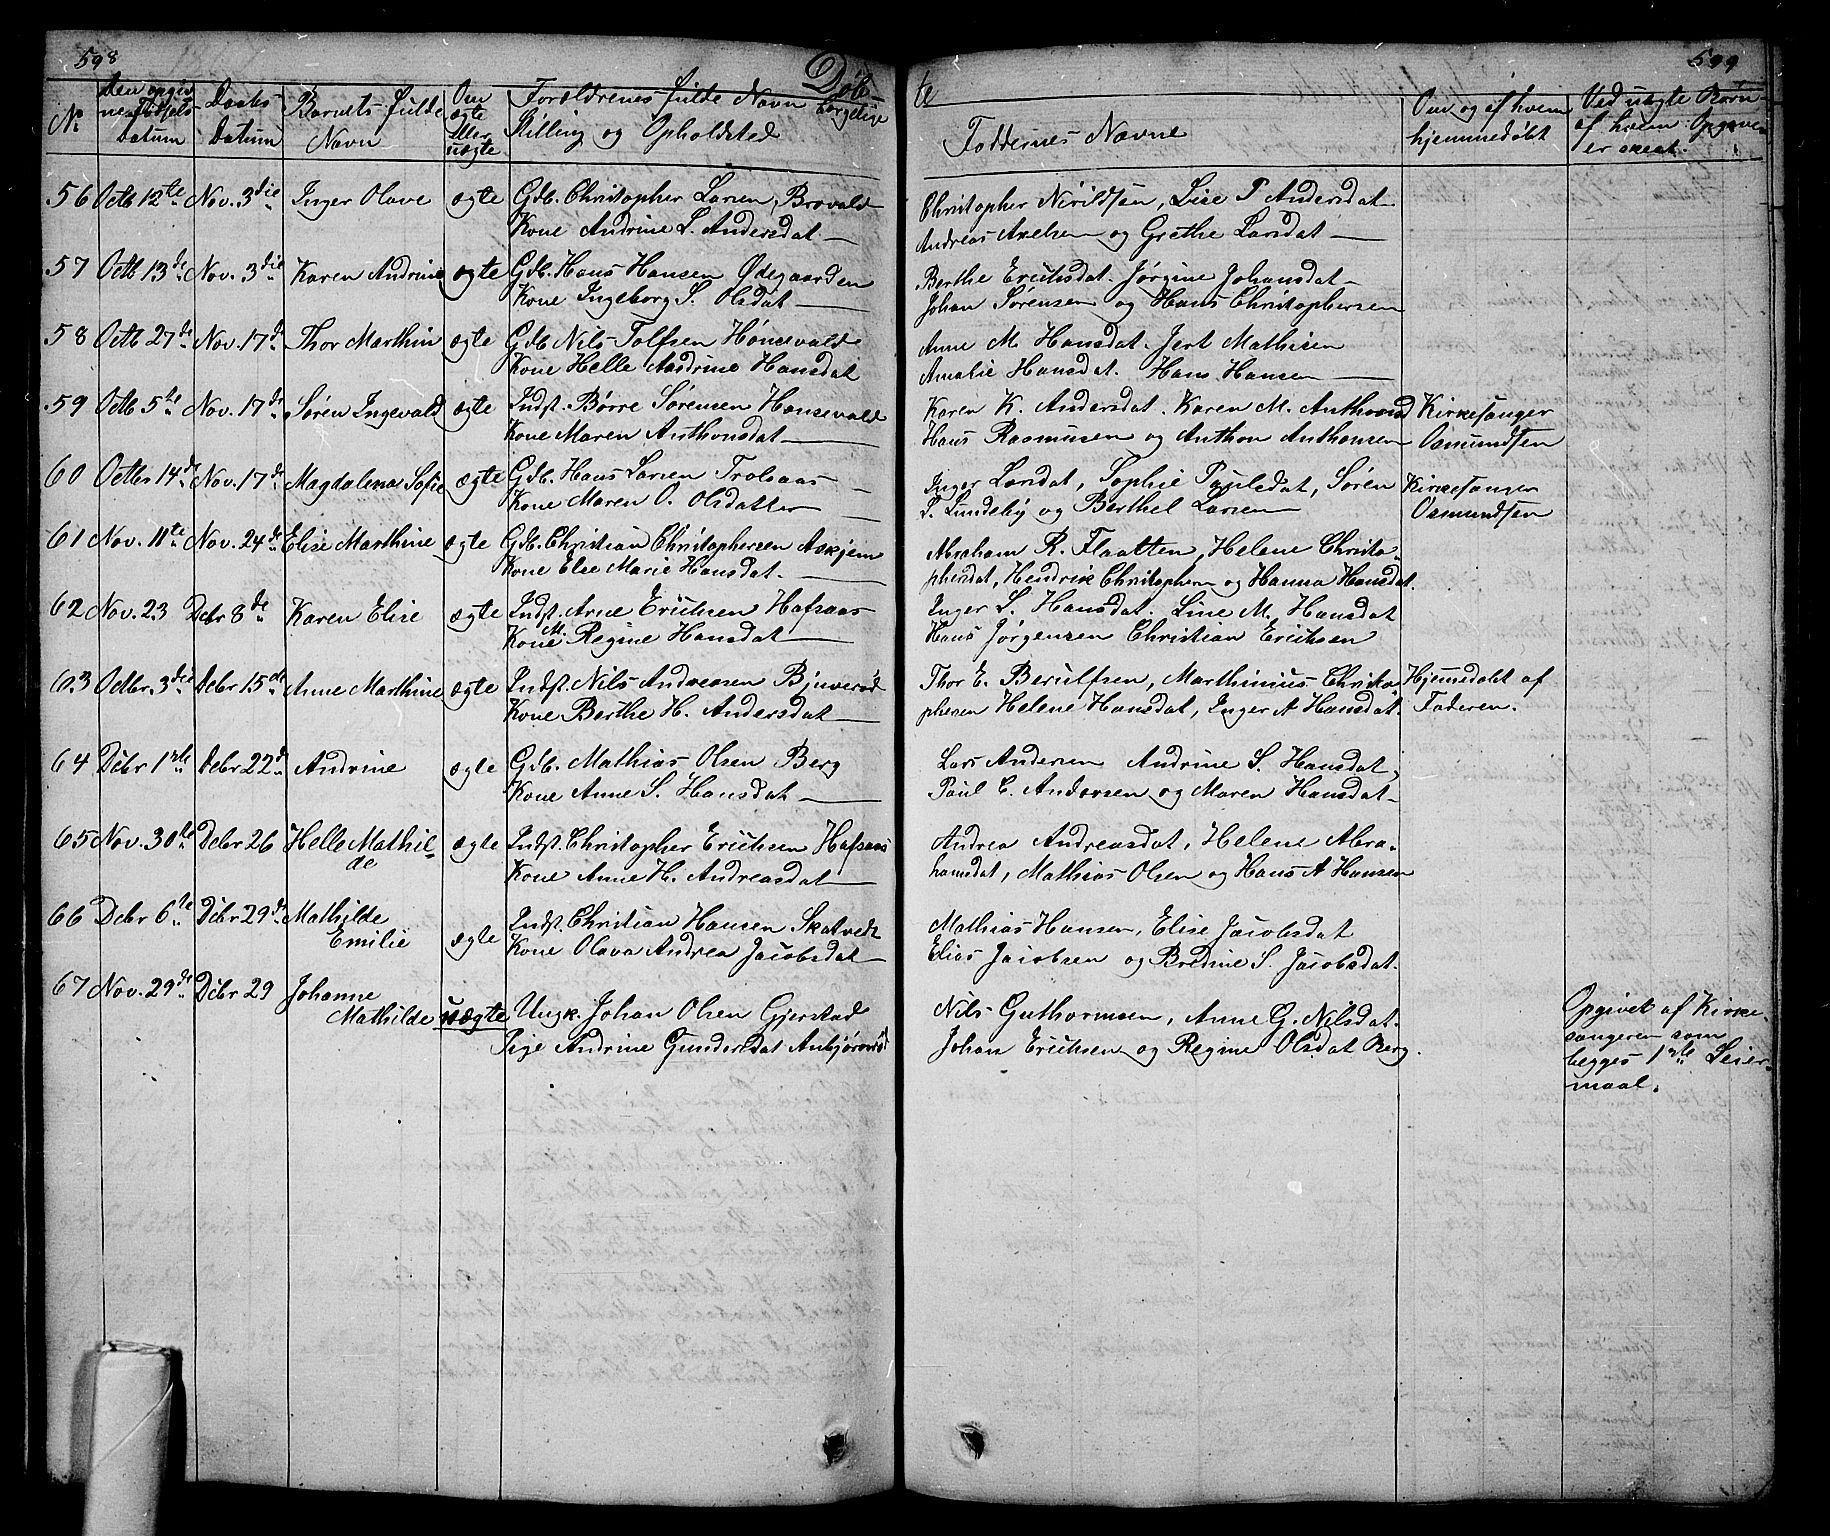 598
Døbte
599
No
Den opgivne Fødsels Datum
Daabs Datum
Barnets fulde Navn
Om ægte eller uægte
Forældrenes fulde Navn borgelige Stilling og Opholdsted
Faddernes Navne
Om og af hvem hjemmedøbt
Ved uægte Børn af hvem Opgaven er skeet.
56 Octb 12te Nov. 3die Inger Olave ægte Gdb. Christopher Larsen, Brovald Christopher Nirildsen, Lise P Andersdat
Kone Andrine L. Andersdat Andreas Axelsen og Grethe Larsdat
57 Octb 13de Nov. 3die Karen Andrine ægte Gdb. Hans Hansen Ødegaarden Berthe Erichsdat. Jørgine Johansdat
Kone Ingeborg S. Olsdat Johan Sørensen og Hans Christophersen
58 Octb 27de Nov. 17de Thor Marthin ægte Gdb Nils Tolfsen Hønsevald Anne M. Hansdat. Jert Mathisen
Kone Helle Andrine Hansdat Amalie Hansdat. Hans Hansen
59 Octb 5te Nov. 17de Søren Ingevald ægte Indst. Børre Sørensen Hønsevald Karen K. Andersdat. Karen M. Anthonsd Kirkesanger
Kone Maren Anthonsdat Hans Rasmusen og Anthon Anthonsen Osmundsen
60 Octbr 14de Nov. 17de Magdalena Sofie ægte Gdb. Hans Larsen Trobaas Inger Larsdat, Sophie Paulsdat, Søren Kirkesanger
Kone Maren O. Olsdatter S. Lundeby og Berthel Larsen Osmundsen
61 Nov. 11te Nov. 24de Elise Marthine ægte Gdb. Christian Christophersen Askjem Abraham R. Flaatten, Helene Christo-
Kone Else Marie Hansdat. phersdat, Hendrik Christophersen og Hanna Hansdat.
62 Nov. 23 Debr 8de Karen Elise ægte Indst. Arne Erichsen Hafsaas Inger L. Hansdat. Line M. Hansdat
Kone M. Regine Hansdat Hans Jørgensen Christian Erichsen
63 Octbr. 3die Debr 15de Anne Marthine ægte Indst. Nils Andreasen Bjuverød Thor E. Berulfsen, Marthinius Christo- Hjemmedøbt af
Kone Berthe H. Andersdat phersen Helene Hansdat, Inger A Hansdat. Faderen.
64 Debr 1ste Debr 22de Andrine ægte Gdb. Mathias Olsen Berg Lars Andersen Andrine S. Hansdat,
Kone Anne S. Hansdat Paul C. Andersen og Maren Hansdat
65 Nov. 30te Debr 26 Helle Mathil- ægte Indst. Christopher Erichsen Hafsaas Andrea Andreasdat, Helene Abra-
de Kone Anne H. Andreasdat hamsdat, Mathias Olsen og Hans A Hansen
66 Debr 6te Debr 29de Mathilde Indst. Christian Hansen Skatvedt Mathias Hansen, Elise Jacobsdat
Emilie ægte Kone Olava Andrea Jacobsdat Elias Jacobsen og Bredine S. Jacobsdat.
67 Nov. 29de Debr 29 Johanne
Mathilde uægte Ungk. Johan Olsen Gjerstad Nils Guthormsen, Anne G. Nilsdat. Opgivet af Kirke-
Pige Andrine Gundersdat Anbjørnrød Johan Erichsen og Regine Olsdat Berg. sangeren som
begges 1ste Leier-
maal.